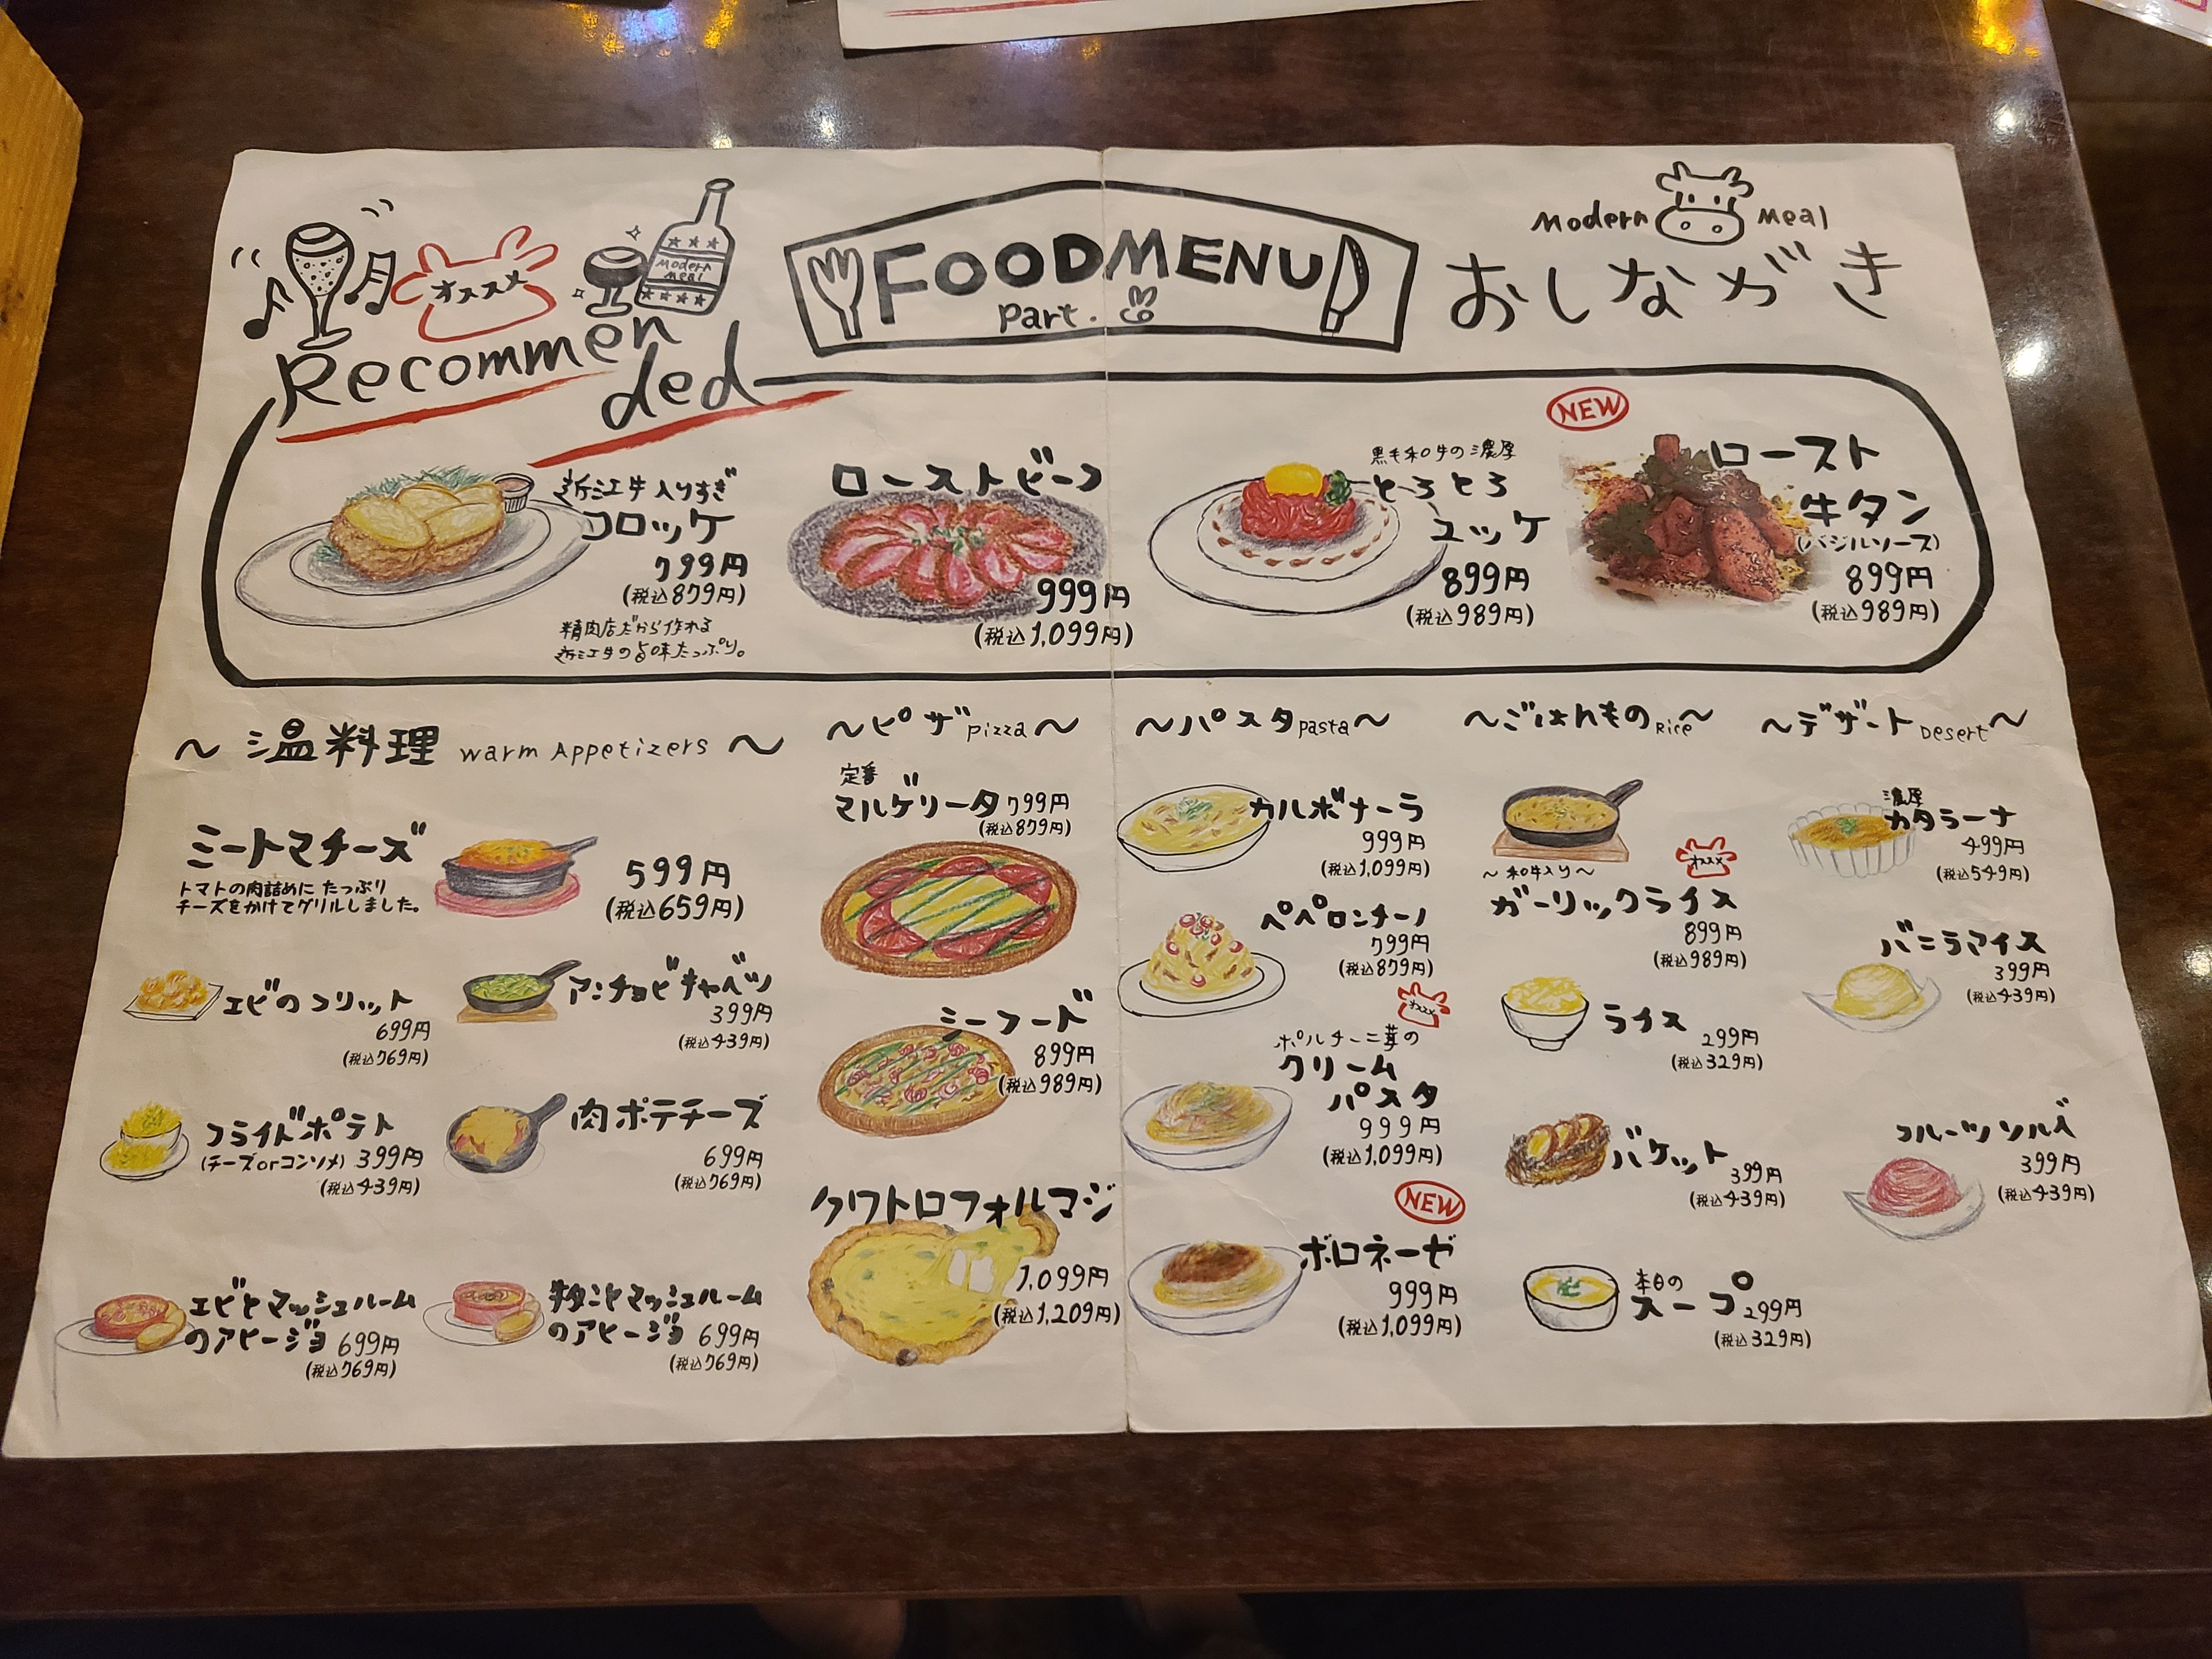 オススメ
Recommen
ded
Modern
Meal
FOODMENU
Part.
Modern Meal
おしながき
近江牛入りすぎ
コロッケ
799円
(税込879円)
精肉店だから作れる
近江牛の旨味たっぷり。
ローストビーフ
999円
(税込1,099円)
黒毛和牛の濃厚
とろとろ
ユッケ
899円
(税込989円)
NEW
ロースト
牛タン
(バジルソース)
899円
(税込989円)
～温料理 warm Appetizers～
ミートマチーズ
トマトの肉詰めに たっぷり
チーズをかけてグリルしました。
599円
(税込659円)
エビのフリット
699円
(税込769円)
アンチョビキャベツ
399円
(税込439円)
フライドポテト
(チーズorコンソメ) 399円
(税込439円)
肉ポテチーズ
699円
(税込769円)
エビとマッシュルーム
のアヒージョ 699円
(税込769円)
牛タンとマッシュルーム
のアヒージョ 699円
(税込769円)
～ピザ pizza～
定番
マルゲリータ 799円
(税込879円)
シーフード
899円
(税込989円)
クワトロフォルマジ
1,099円
(税込1,209円)
～パスタ pasta～
カルボナーラ
999円
(税込1,099円)
ペペロンチーノ
799円
(税込879円)
オススメ
ポルチーニ茸の
クリーム
パスタ
999円
(税込1,099円)
NEW
ボロネーゼ
999円
(税込1,099円)
～ごはんもの Rice～
オススメ
～和牛入り～
ガーリックライス
899円
(税込989円)
ライス
299円
(税込329円)
バケット
399円
(税込439円)
本日の
スープ 299円
(税込329円)
～デザート Desert～
濃厚
カタラーナ
499円
(税込549円)
バニラアイス
399円
(税込439円)
フルーツソルベ
399円
(税込439円)